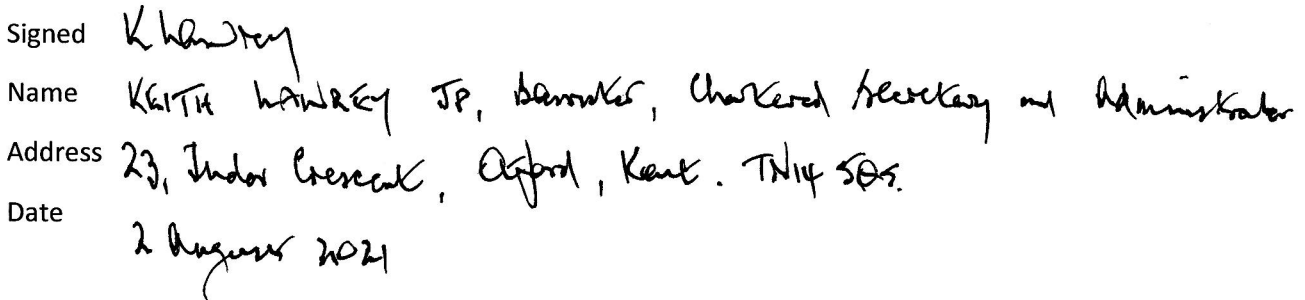 Signed K Lawrey
Name KEITH LAWREY JP, Barrister, Chartered Secretary and Administrator
Address 23, Tudor Crescent, Otford, Kent. TN14 5QS.
Date
2 August 2021